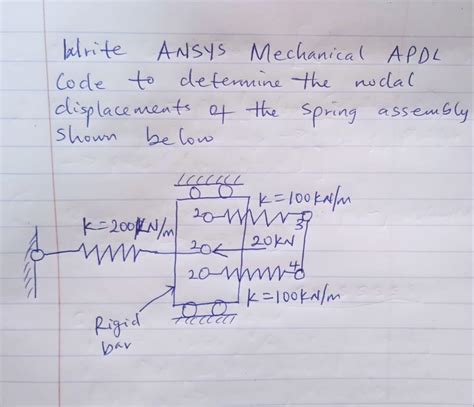 Write ANSYS Mechanical APDL
Code to determine the nodal
displacements of the spring assembly
shown below
K=100KN/m
K=200KN/m
2
3
2
20KN
2
4
K=100KN/m
Rigid
bar